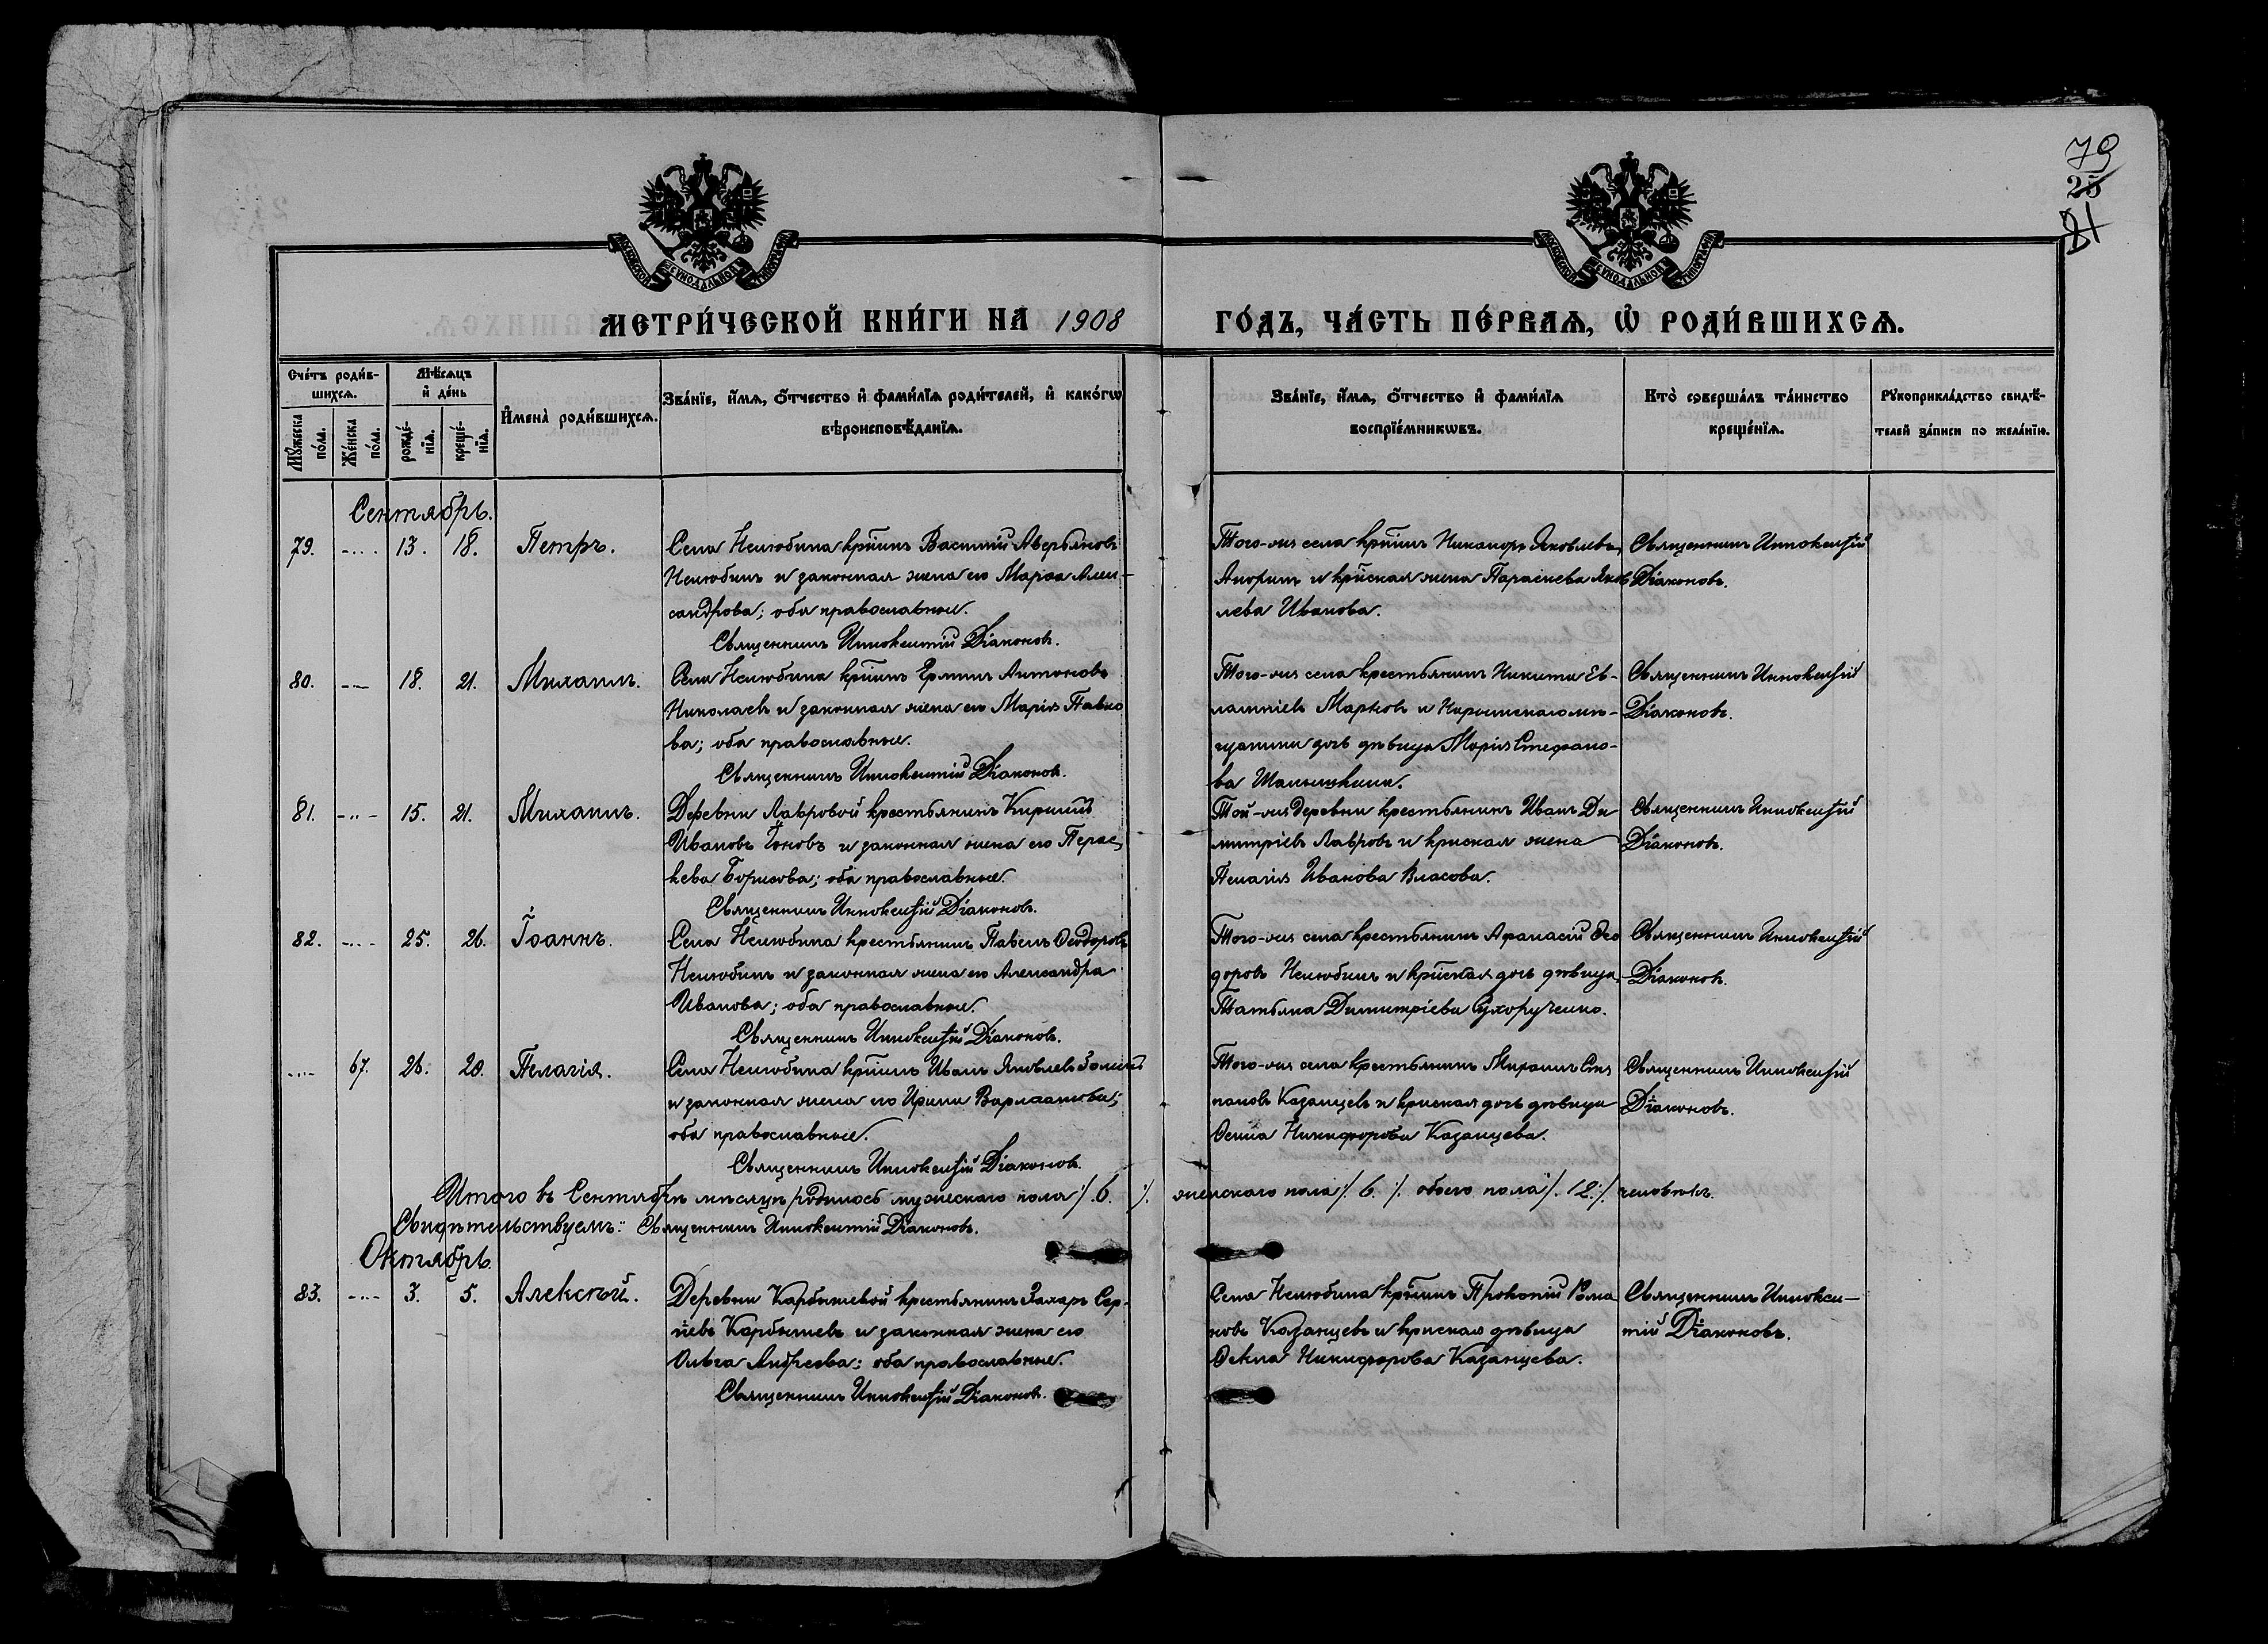 79
25
21
МОСКОВСКОЙ СѴНОДАЛЬНОЙ ТИПОГРАФІИ
МОСКОВСКОЙ СѴНОДАЛЬНОЙ ТИПОГРАФІИ
МЕТРИ́ЧЕСКОЙ КНИ́ГИ НА 1908 ГО́ДЪ, ЧА́СТЬ ПЕ́РВАѦ, Ѡ҆ РОДИ́ВШИХСѦ.
Сче́тъ роди́в-
шихсѧ.
Мꙋ́жеска по́ла.
Же́нска по́ла.
Мѣ́сѧцъ
и҆ де́нь
рожде́-
нїѧ.
креще́-
нїѧ.
И҆мена̀ роди́вшихсѧ.
Зва́нїе, и҆́мѧ, ѻ҆́тчество и҆ фами́лїѧ роди́телей, и҆ како́гѡ
вѣроисповѣ́данїѧ.
Зва́нїе, и҆́мѧ, ѻ҆́тчество и҆ фами́лїѧ
воспрїе́мникѡвъ.
Кто̀ соверша́лъ та́инство
креще́нїѧ.
Рꙋкоприкла́дство свидѣ́-
телей за́писи по жела́нїю.
Сентябрь.
79. -... 13. 18. Петръ.
Села Нелюбина кр͠нинъ Василій Аверьяновъ
Нелюбинъ и законная жена его Марѳа Алек-
сандрова; оба православные.
Священникъ Иннокентій Діаконовъ.
Того-же села кр͠нинъ Никаноръ Яковлевъ
и кр͠нская жена Параскева Яков
лева Иванова.
Священникъ Иннокентій
Діаконовъ.
80. -- 18. 21. Михаилъ.
Села Нелюбина кр͠нинъ Ермилъ Антоновъ
Николаевъ и законная жена его Марія Павло
ва; оба православные.
Священникъ Иннокентій Діаконовъ.
Того-же села крестьянинъ Никита Ев-
лампіевъ Марковъ и Нарымскаго мѣ-
щанина дочь дѣвица Марія Стефано-
ва
Священникъ Иннокентій
Діаконовъ.
81. -..- 15. 21. Михаилъ.
Деревни Лавровой крестьянинъ Кириллъ
Ивановъ Іоновъ и законная жена его Парас
кева Борисова; оба православные.
Священникъ Иннокентій Діаконовъ.
Той-же деревни крестьянинъ Иванъ Ди-
митріевъ Лавровъ и крнская жена
Пелагія Иванова Власова.
Священникъ Иннокентій
Діаконовъ.
82. -..- 25. 26. Іоаннъ.
Села Нелюбина крестьянинъ Павелъ Ѳеодоровъ
Нелюбинъ и законная жена его Александра
Иванова; оба православные.
Священникъ Иннокентій Діаконовъ.
Того-же села крестьянинъ Аѳанасій Ѳео
доровъ Нелюбинъ и кр͠нская дочь дѣвица
Татьяна Димитріева Сухорученко.
Священникъ Иннокентій
Діаконовъ.
..- 67. 26. 28. Пелагія.
Села Нелюбина кр͠нинъ Иванъ Яковлевъ
и законная жена его Ирина Варлаамова;
оба православные.
Священникъ Иннокентій Діаконовъ.
Того-же села крестьянинъ Михаилъ Сте
пановъ Казанцевъ и крнская дочь дѣвица
Ѳекла Никифорова Казанцева.
Священникъ Иннокентій
Діаконовъ.
Итого въ Сентябрѣ мѣсяцѣ родилось мужескаго пола ⁒ 6. ⁒ женскаго пола ⁒ 6. ⁒ обоего пола ⁒ 12. ⁒ человѣкъ.
Свидѣтельствуемъ: Священникъ Иннокентій Діаконовъ.
Октябрь
83. -..- 3. 5. Алексѣй.
Деревни Карбышевой крестьянинъ Захаръ Сер-
гіевъ Карбышевъ и законная жена его
Ольга Андреева; оба православные.
Священникъ Иннокентій Діаконовъ.
Села Нелюбина кр͠нинъ Прокопій Рома
новъ Казанцевъ и крнская дѣвица
Ѳекла Никифорова Казанцева.
Священникъ Иннокен-
тій Діаконовъ.